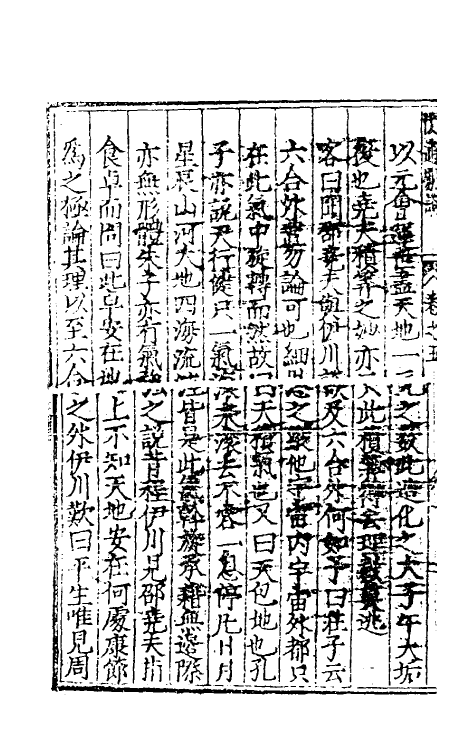 以元會運世盡天地一元之數此造化之大子午大垢
復也堯夫積筭之
客曰聞邵堯夫與伊川談及六合外何如予曰莊子云
六合外且勿論可也細思之最他宇宙內宇宙外都只
在此氣中旋轉而然故曰天積氣也又曰天包地也孔
子亦說天行健只一氣滾來滾去不容一息停凡日月
星辰山河大地四海流注皆是此氣斡旋承藉無邊際
亦無形體朱子亦有氣之說昔程伊川見邵堯夫指
食卓而問曰此卓安在地上不知天地安在何處康節
爲之極論其理以至六合之外伊川歎曰平生唯見周